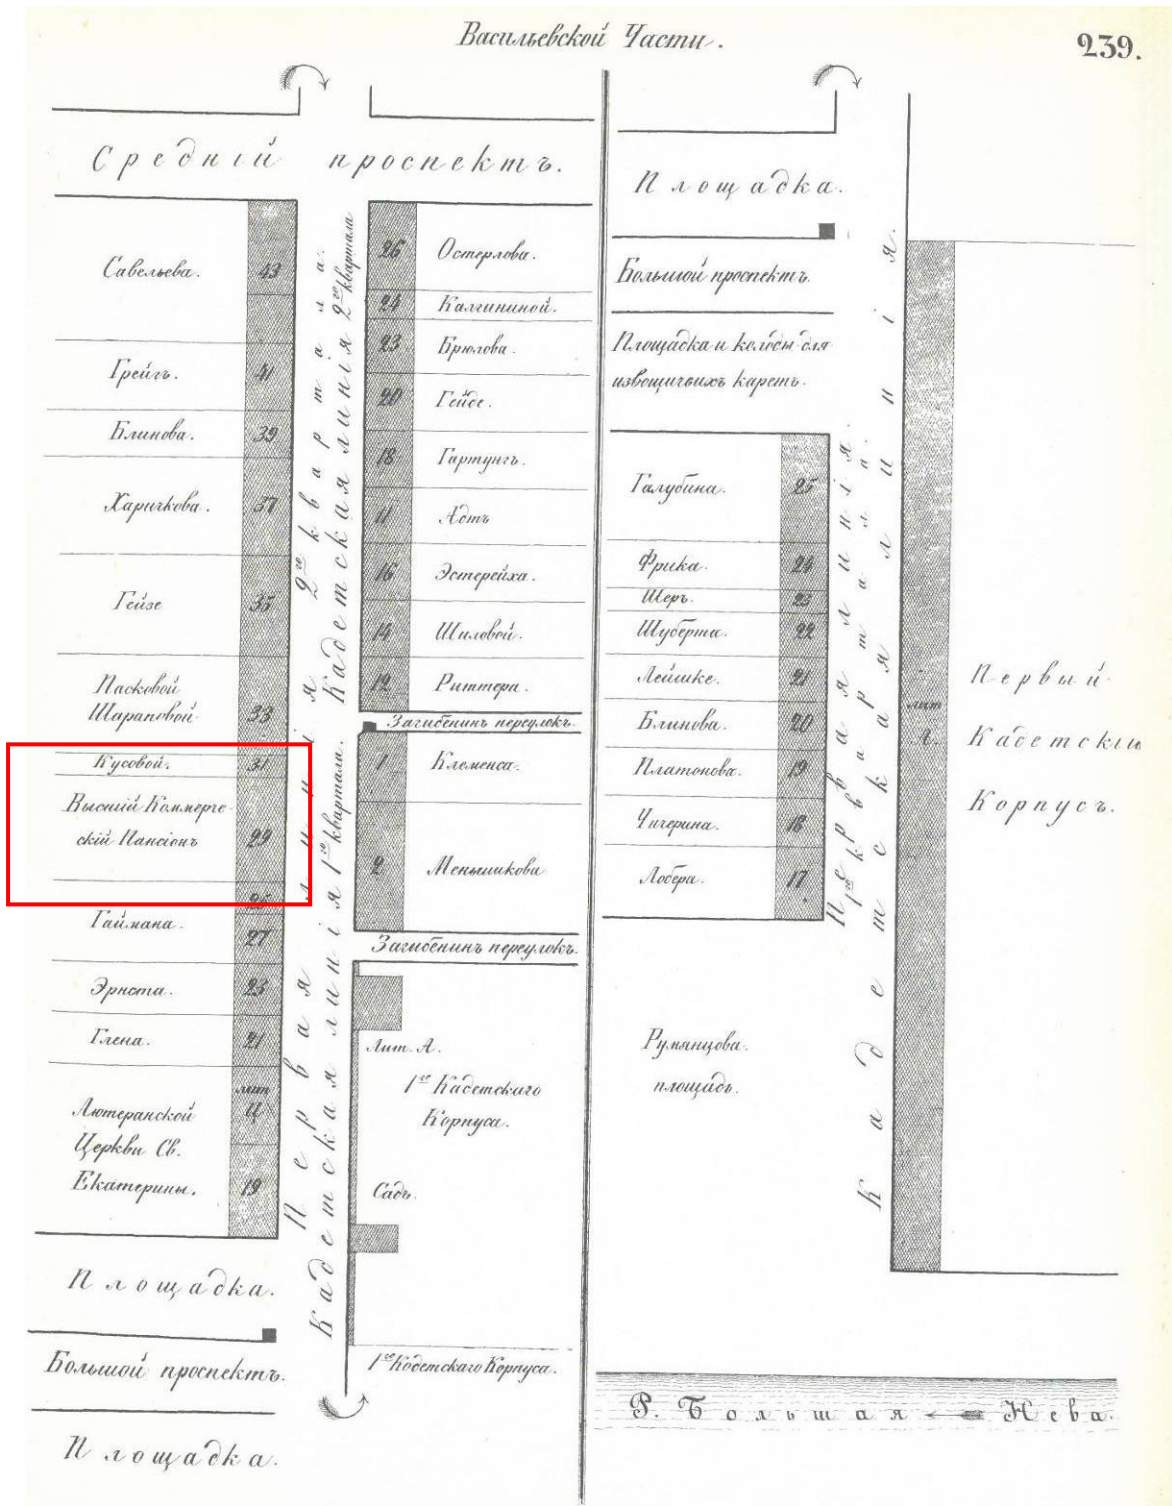 Васильевской Части.
239.
Средній проспектъ.
Савельева. 43
Грейгъ. 41
Блинова. 39
Харичкова. 37
Гейзе 35
Пасковой
Шараповой 33
Кусовой. 31
Высшій Коммерче-
скій Пансіонъ 29
Гаймана. 27
Эрнста. 23
Глена. 21
лит
Ц
Лютеранской
Церкви Св.
Екатерины. 19
Площадка.
Большой проспектъ.
Площадка.
Первая линія 2го квартала.
Кадетская линія 2го квартала
Кадетская линія 1го квартала.
26 Остерлова.
24 Калгининой.
23 Брюлова.
20 Гейде.
18 Гартунгъ.
11 Адтъ
16 Эстерейха.
14 Шиловой.
12 Риттера.
Загибенинъ переулокъ.
1 Клеменса.
2 Меньшикова
Загибенинъ переулокъ.
Лит. А.
1го Кадетскаго
Корпуса.
Садъ.
1го Кадетскаго Корпуса.
Площадка.
Большой проспектъ.
Площадка и колоды для
извощичьихъ каретъ.
Галубина. 25
Фрика. 24
Шеръ. 23
Шуберта. 22
Лейшке. 21
Блинова. 20
Платонова. 19
Чичерина. 18
Лобера. 17
Румянцова.
площадь.
Первая линія
1го квартала.
Кадетская линія.
лит
А.
Первый
Кадетскій
Корпусъ.
Р. Большая Нева.